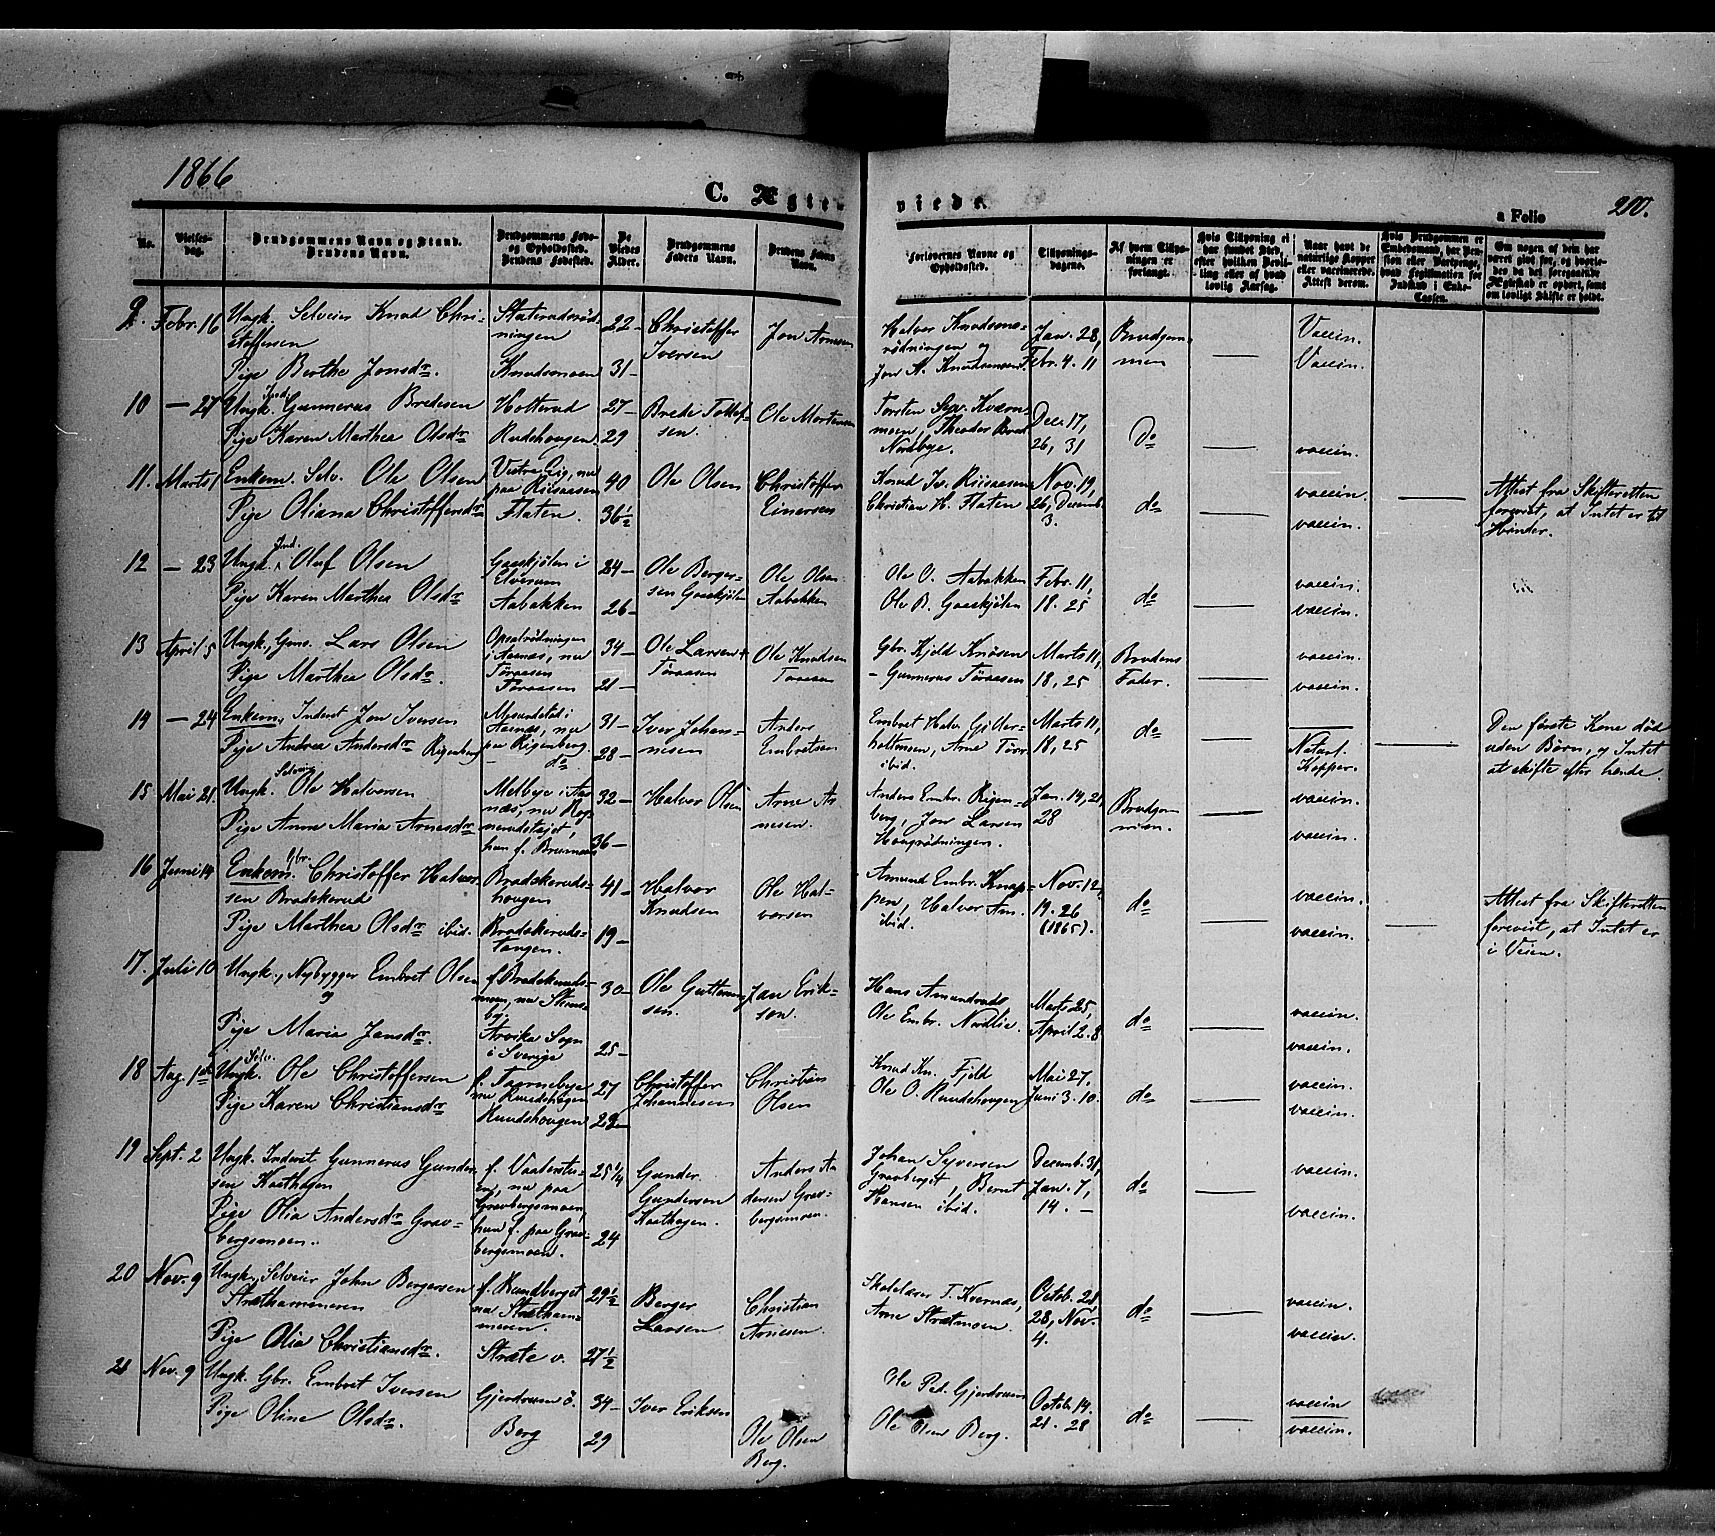 1866
C. Ægte-
viede.
a Folio
200.
No.
Vielses-
dag.
Brudgommens Navn og Stand.
Brudens Navn.
Brudgommens Føde-
og Opholdssted.
Brudens Fødested.
De
Viedes
Alder.
Brudgommens
Faders Navn.
Brudens Faders
Navn.
Forlovernes Navne og
Opholdssted.
Tillysnings-
dagene.
Af hvem Tillys-
ningen er
forlangt.
Hvis Tillysning ei
har fundet Sted,
efter hvilken Bevil-
ling eller af hvad
lovlig Aarsag.
Naar havt de
naturlige Kopper
eller vaccinerede.
Attest derom.
Hvis Brudgommen er
Embedsmand, har Pen-
sion eller Vartpenge,
hvad Legitimation for
Indskud i Enke-
Cassen.
Om nogen af dem har
været gift før, og hvorle-
des da det foregaaende
Ægteskab er ophørt, samt
om lovligt Skifte er holdt.
9. Febr. 16 Ungk. Selveier Knud Chri-
stoffersen
Pige Berthe Jonsdr.
ningen
Knudsmoen
22 -
31 -
Christoffer
Iversen
Jon Arnesen
Halvor Knudsmo-
rødningen og
Jon A. Knudsmoen
Jan. 28,
Febr. 4. 11
Brudgom-
men
Vaccin.
Vaccin.
10 - 27 Ungk. Ind. Gunnerus Bredesen
Pige Karen Marthea Olsdr
Hotterud
Rudshougen
27 -
29
Brede Tollef-
sen.
Ole Mortensen
Torsten Syv. Kværn-
moen, Theodor Bred.
Nordbye.
Dec. 17,
26, 31
do
vaccin.
11. Marts 1 Enkem. Selv. Ole Olsen
Pige Oliana Christoffersdr
Vestre Eig, nu
paa Riisaasen
Flaten.
40
36½
Ole Olsen
Christoffer
Einersen
Knud Iv. Riisaasen
Christian H. Flaten
Nov. 19,
26, Decemb.
3.
do
vaccin.
vaccin.
Attest fra Skifteretten
forevist, at Intet er til
Hinder.
12 - 23 Ungk. Ind. Oluf Olsen
Pige Karen Marthea Olsdr
Gaaskjølen i
Elverum
Aabakken
24 -
26 -
Ole Berger-
sen Gaaskjølen
Ole Olsen
Aabakken
Ole O. Aabakken
Ole B. Gaaskjølen
Febr. 11,
18. 25
do
vaccin.
vaccin.
13 April 5 Ungk., Gms. Lars Olsen
Pige Marthea Olsdr.
Opsalrødningen
i Aasnæs, nu
Føraasen
Føraasen
34 -
21 -
Ole Larsen
Føraasen
Ole Knudsen
Føraasen
Gbr. Kjeld Knøsen
- Gunnerus Føraasen
Marts 11,
18, 25
Brudens
Fader.
vaccin.
vaccin.
14 - 24 Enkem, Inderst Jon Iversen
Pige Andrea Andersdr Rigenberg
Aasnæs, nu
paa Rigenberg
do
31 -
28 -
Iver Johan-
nesen
Anders
Embretsen
Embret Halv. Gitter-
holtmoen, Arne
ibid.
Marts 11,
18, 25
do
Naturl.
Kopper.
Den første Kone død
uden Børn, og Intet
at skifte efter hende
15 Mai 21. Ungk. Selveier Ole Halvorsen
Pige Anne Maria Arnesdr
Melbye i Aas-
næs, nu
hun f. Brunmoen
32 -
36 -
Halvor Olsen
Arne Ar-
nesen.
Anders Embr. Rigen-
berg, Jon Larsen
Haugrødningen.
Jan. 14, 21
28
Brudgom-
men.
vaccin.
vaccin.
16 Juni 14 Enkem. Gbr. Christoffer Halvor-
sen Bradskerud
Pige Marthea Olsdr ibid.
Bradskeruds-
hougen
Bradskeruds-
tangen.
41 -
19 -
Halvor
Knudsen
Ole Hal-
vorsen
Amund Embr. Knap-
pen, Halvor Am.
ibid.
Nov. 12
19. 26
(1865).
do
vaccin.
vaccin.
Attest fra Skifteretten
forevist, at Intet er
i Veien.
17. Juli 10 Ungk., Nybygger Embret Olsen
og
Pige Maria Jansdr.
f. Bradskeruds-
moen, nu
Arvika Sogn
i Sverige
30 -
25 -
Ole Guttorm-
sen.
Jan Erik-
sen.
Hans Amundruds
Ole Embr. Nordlie.
Marts 25,
April 2. 8
do
vaccin.
vaccin.
18 Aug. 1 Ungk. Selv. Ole Christoffersen
Pige Karen Christiansdr
f. Taarnebye
nu Ruudshougen
Ruudshougen
27
22 -
Christoffer
Johannesen
Christian
Olsen
Knud Kn. Fjeld
Ole O. Ruudshougen
Mai 27,
Juni 3. 10.
do
vaccin.
vaccin.
19 Sept. 2 Ungk. Inderst Gunnerus Gunder-
sen Kaathagen
Pige Olia Andersdr Grav-
bergsmoen.
nu paa
Gravbergsmoen,
hun f. paa Grav-
bergsmoen.
25¼
24
Gunder
Gundersen
Kaathagen.
Anders An-
dersen Grav-
bergsmoen.
Johan Syversen
Gravberget, Bernt
Hansen ibid.
Decemb. 31,
Jan. 7,
14. -
do
vaccin.
vaccin.
20 Nov. 9 Ungk. Selveier John Bergersen
Pige Olia Christiansdr.
f. Rundberget
nu
Stræte v.
29½
27½
Berger
Larsen
Christian
Arnesen.
Skolelærer T. Kvernæs,
Arne Strætmoen.
Octob. 21
28, Nov.
4.
do
vaccin.
vaccin.
21 Nov. 9 Ungk. Gbr. Embret Iversen
Pige Oline Olsdr.
Gjerdrum ö.
Berg
34 -
29
Iver Eriksen
Ole Olsen
Berg.
Ole Ped. Gjerdrum
Ole Olsen Berg.
Octob. 14.
21. 28
do
vaccin
vaccin.